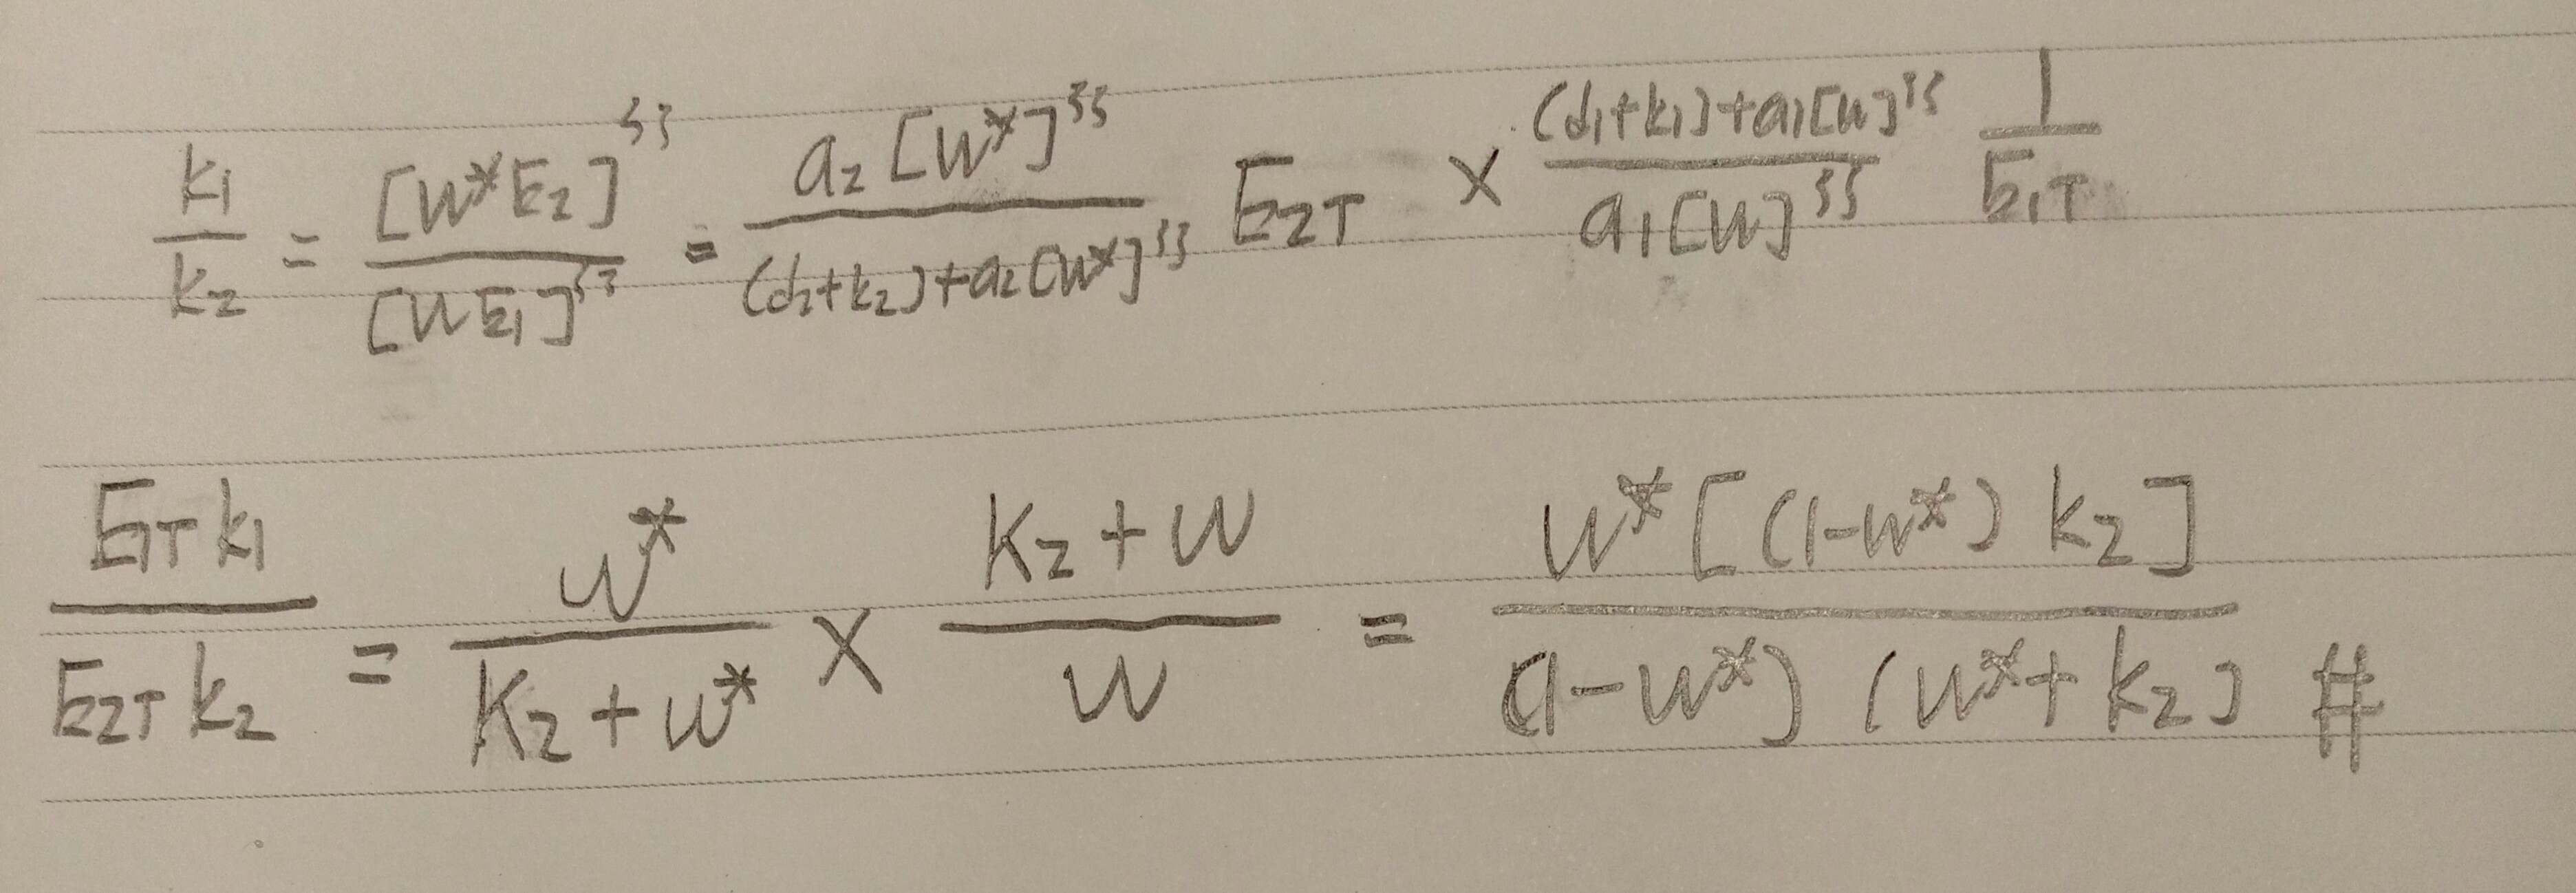 k₁/k₂ = [W*E₂]^ss/[WE₁]^ss = a₂[W*]^ss/((d₂+k₂)+a₂[W*]^ss) E₂T × ((d₁+k₁)+a₁[W]^ss)/(a₁[W]^ss) 1/E₁T
E₁T k₁/E₂T k₂ = W*/(K₂+W*) × (K₂+W)/W = W*[(1-W*) k₂]/((1-W*) (W*+k₂)) #